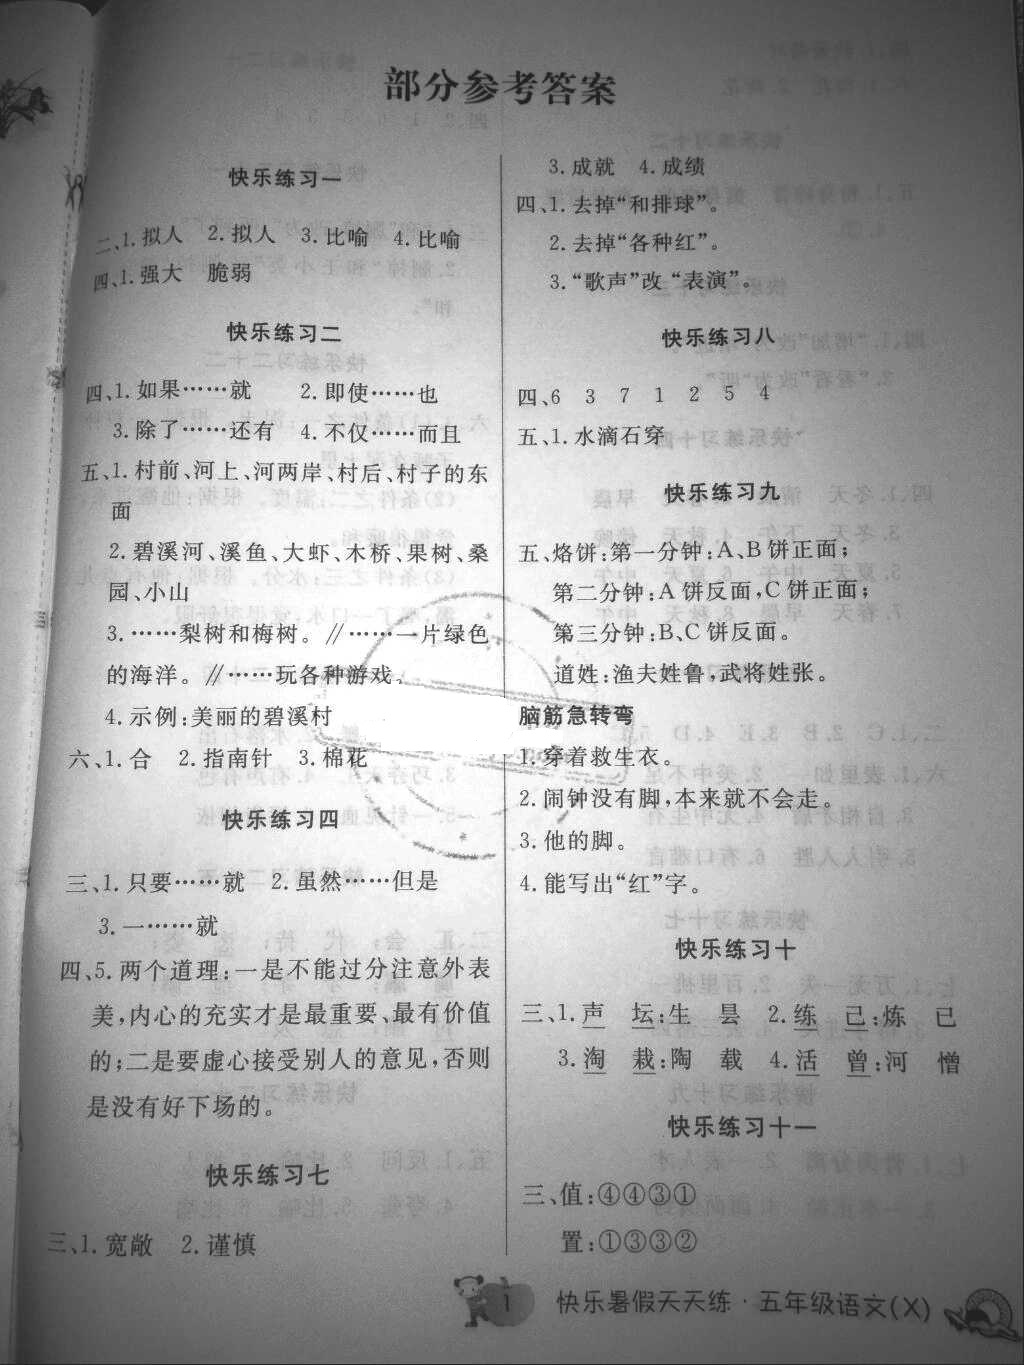 部分参考答案
快乐练习一
二、1.拟人 2.拟人 3.比喻 4.比喻
四、1.强大 脆弱
快乐练习二
四、1.如果……就 2.即使……也
3.除了……还有 4.不仅……而且
五、1.村前、河上、河两岸、村后、村子的东
面
2.碧溪河、溪鱼、大虾、木桥、果树、桑
园、小山
3.……梨树和梅树。∥……一片绿色
的海洋。∥……玩各种游戏。
4.示例:美丽的碧溪村
六、1.合 2.指南针 3.棉花
快乐练习四
三、1.只要……就 2.虽然……但是
3.一……就
四、5.两个道理:一是不能过分注意外表
美,内心的充实才是最重要、最有价值
的;二是要虚心接受别人的意见,否则
是没有好下场的。
快乐练习七
三、1.宽敞 2.谨慎
3.成就 4.成绩
四、1.去掉“和排球”。
2.去掉“各种红”。
3.“歌声”改“表演”。
快乐练习八
四、6 3 7 1 2 5 4
五、1.水滴石穿
快乐练习九
五、烙饼:第一分钟:A、B饼正面;
第二分钟:A饼反面,C饼正面;
第三分钟:B、C饼反面。
道姓:渔夫姓鲁,武将姓张。
脑筋急转弯
1.穿着救生衣。
2.闹钟没有脚,本来就不会走。
3.他的脚。
4.能写出“红”字。
快乐练习十
三、1.声 坛:生 昙 2.练 己:炼 已
3.淘 栽:陶 载 4.活 曾:河 憎
快乐练习十一
三、值:④④③①
置:①③③②
1 快乐暑假天天练·五年级语文(X)